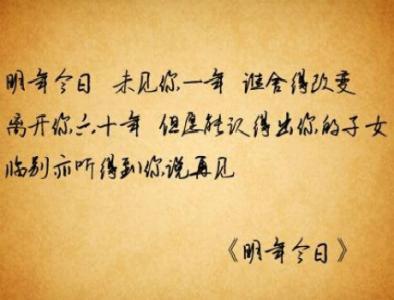 明年今日 未见你一年 谁舍得改变
离开你六十年 但愿能认得出你的子女
临别亦听得到你说再见
《明年今日》